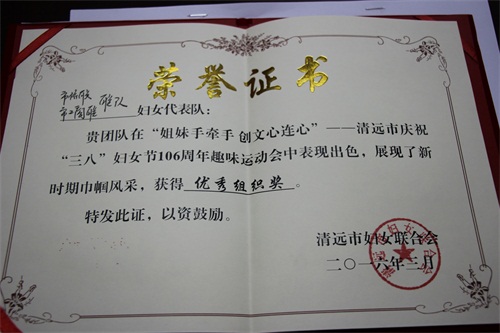 荣誉证书
联队
妇女代表队：
贵团队在“姐妹手牵手 创文心连心”——清远市庆祝
“三八”妇女节106周年趣味运动会中表现出色，展现了新
时期巾帼风采，获得 优秀组织奖 。
特发此证，以资鼓励。
清远市妇女联合会
二〇一六年三月